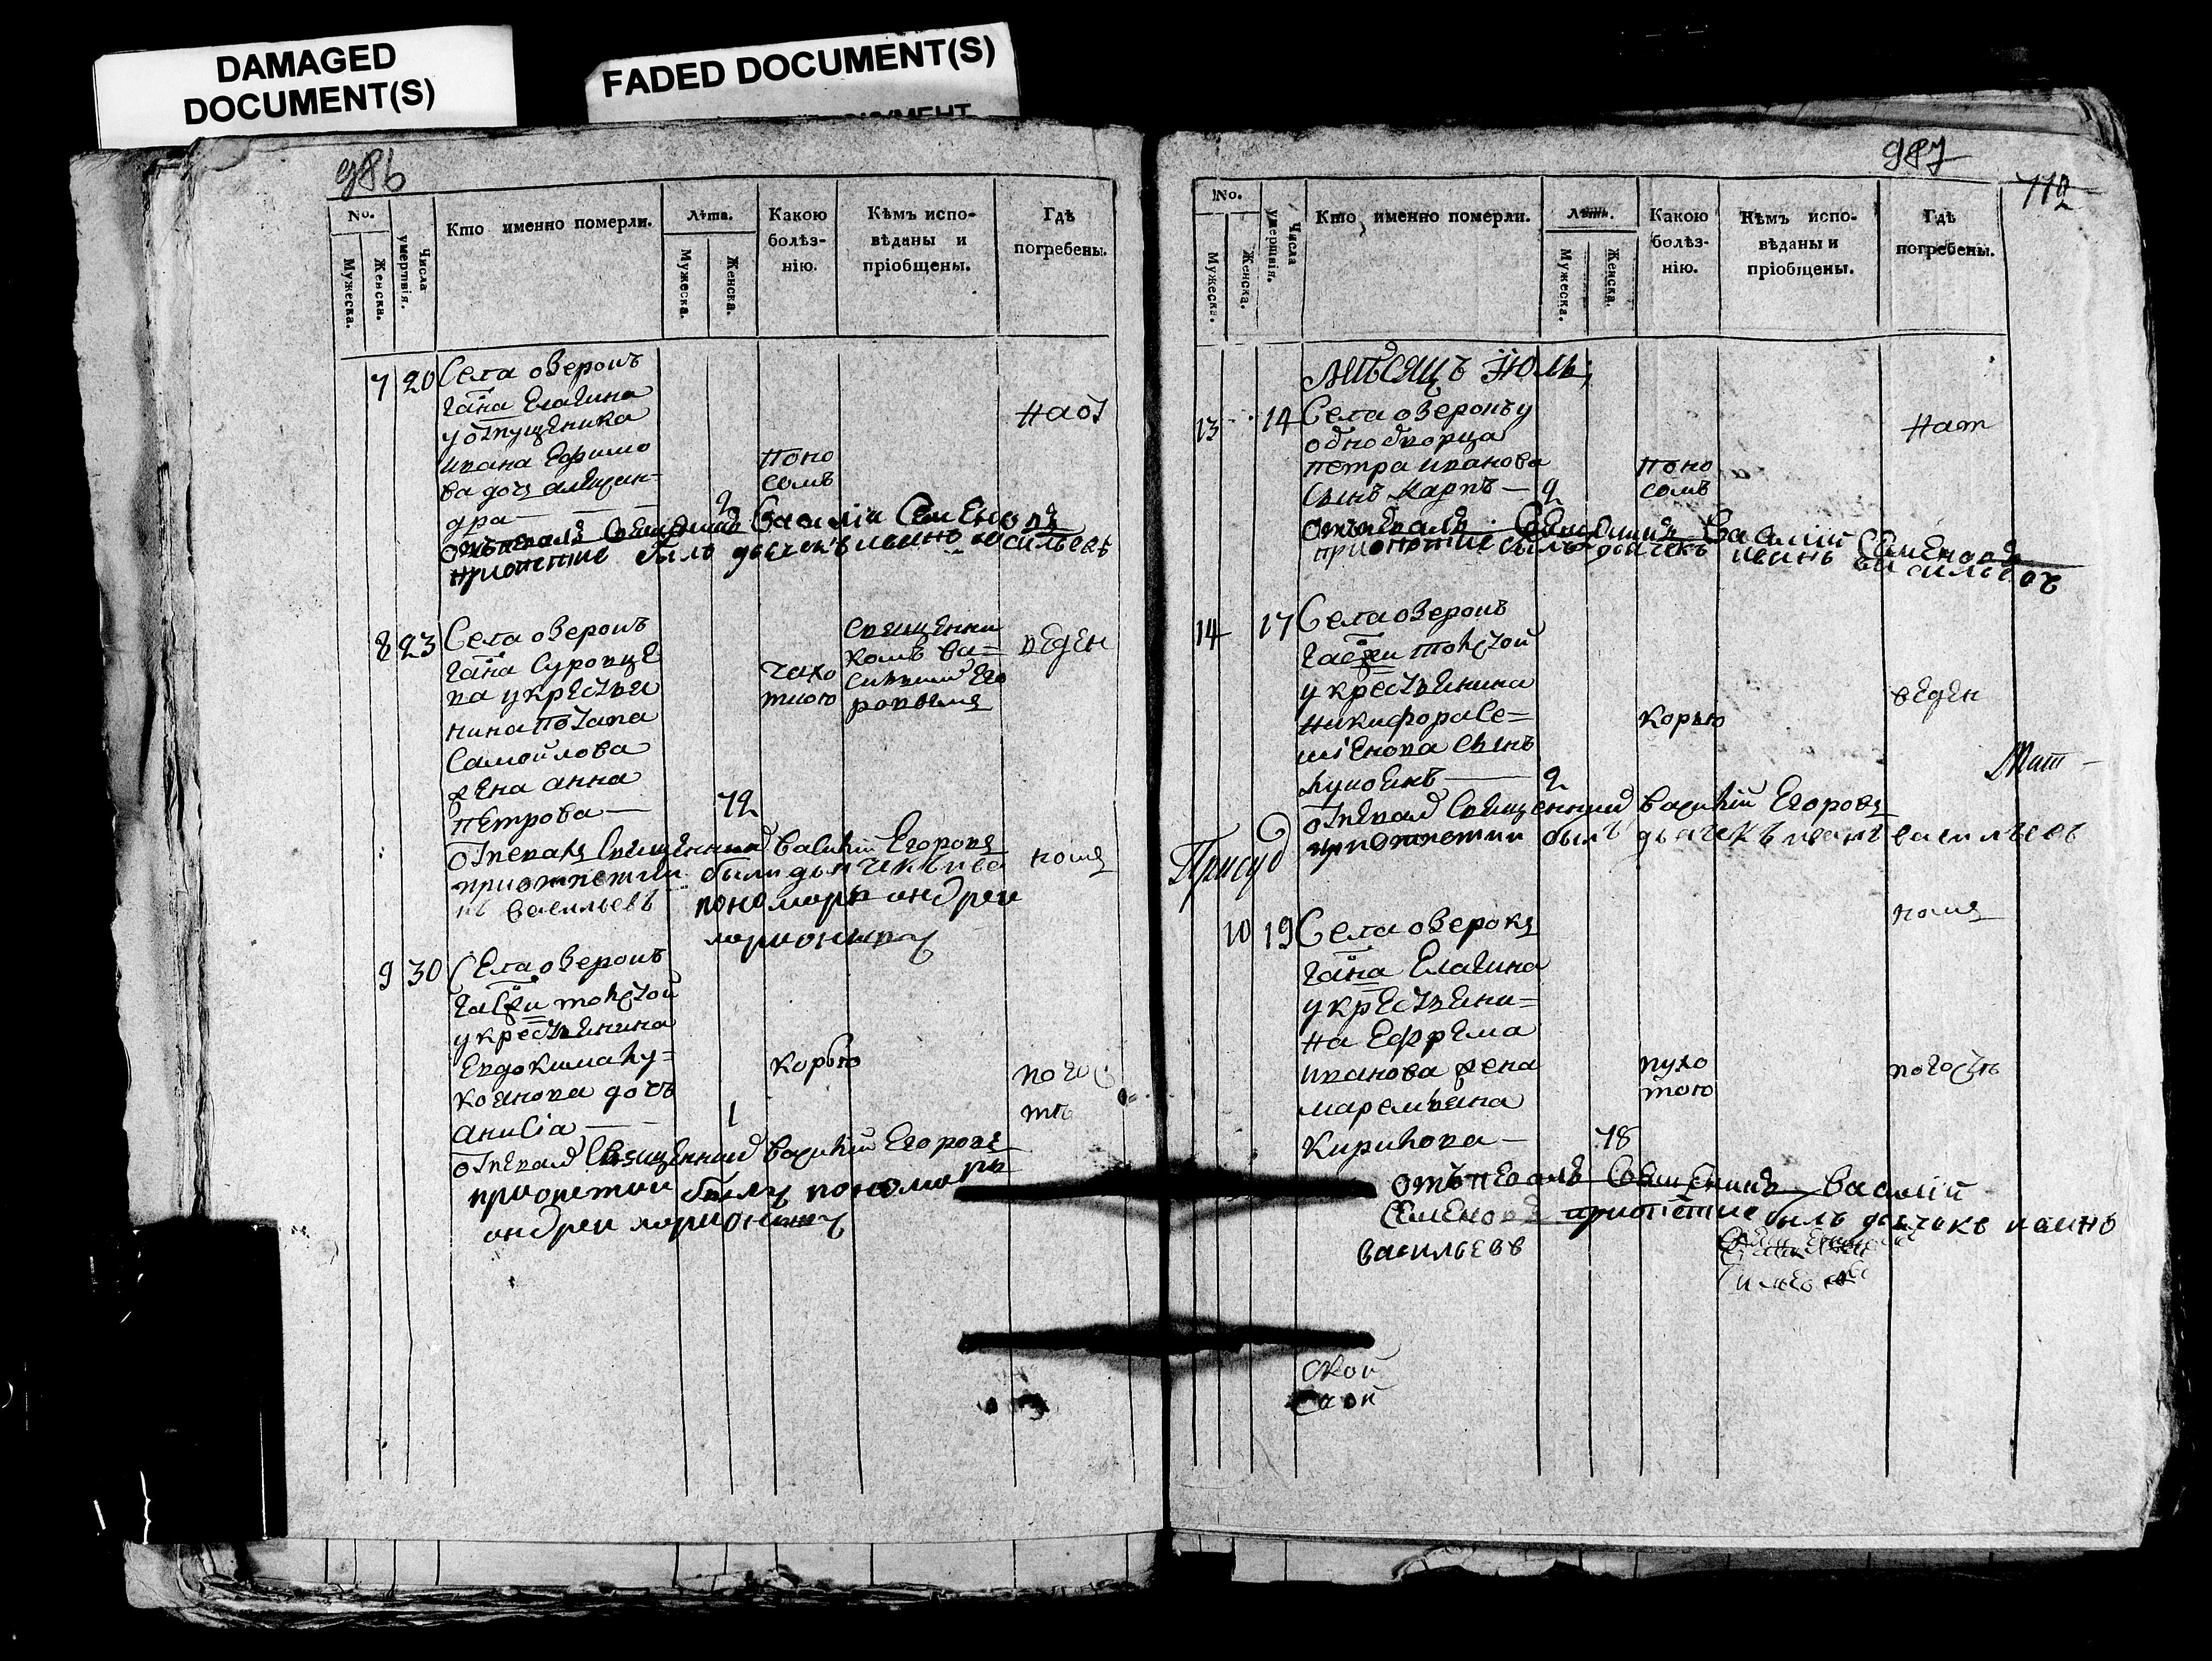 DAMAGED
DOCUMENT(S)
FADED DOCUMENT(S)
986
No.
Мужеска.
Женска.
Числа умертвія.
Кто именно померли.
Лѣта.
Мужеска.
Женска.
Какою болѣз-
нію.
Кѣмъ испо-
вѣданы и
пріобщены.
Гдѣ
погребены.
7 20 Села озерокъ
Елагина
Ивана Ефимо
ва дочь алеѯан-
дра — 2
поно
сомъ
На об
Священникъ Василій Семеновъ
при отпетіе былъ дьячекъ иванъ васильевъ
8 23 Села озерокъ
нина потапа
Самойлова
жена анна
Петрова — 72
чахо
ткою
Священни
комъ ва=
силиемъ Его
ровымъ
веден
отпевалъ Священникъ василий Егоровъ
при отпетии были дьячекъ ива
нъ васильевъ пономарь андреи
ларионовъ
номъ
9 30 Села озерокъ
толстой
у крестьянина
Евдокима лу=
кьянова дочь
анисіа — 1
корью
погос
тѣ
отпевалъ Священникъ василий Егоровъ
при отпетии былъ пономарь
андреи ларионовъ
987
112
No.
Мужеска.
Женска.
Числа умертвія.
Кто именно померли.
Лѣта.
Мужеска.
Женска.
Какою
болѣз-
нію.
Кѣмъ испо-
вѣданы и
пріобщены.
Гдѣ
погребены.
мѣсяцъ Июль
13 14 Села озерокъ у
однодворца
петра иванова
Сынъ Карпъ — 2
поно
сомъ
Нат
отпевалъ Священникъ Василій Семеновъ
при отпетие былъ дьячекъ иванъ васильевъ
14 17 Села озерокъ
толстой
у крестьянина
никифора Се=
менова Сынъ
— 2
корью
веден
Мат —
отпевалъ Священникъ василий Егоровъ
при отпетии былъ дьячекъ иванъ васильевъ
Присуд
10 19 Села озерокъ
Елагина
у крестьяни=
на Ефрема
иванова жена
маремьяна
Кирилова — 78
пухо
тою
номъ
погостѣ
отъпевалъ Священикъ Василій
Семеновъ при отпетие былъ дьячекъ иванъ
васильевъ